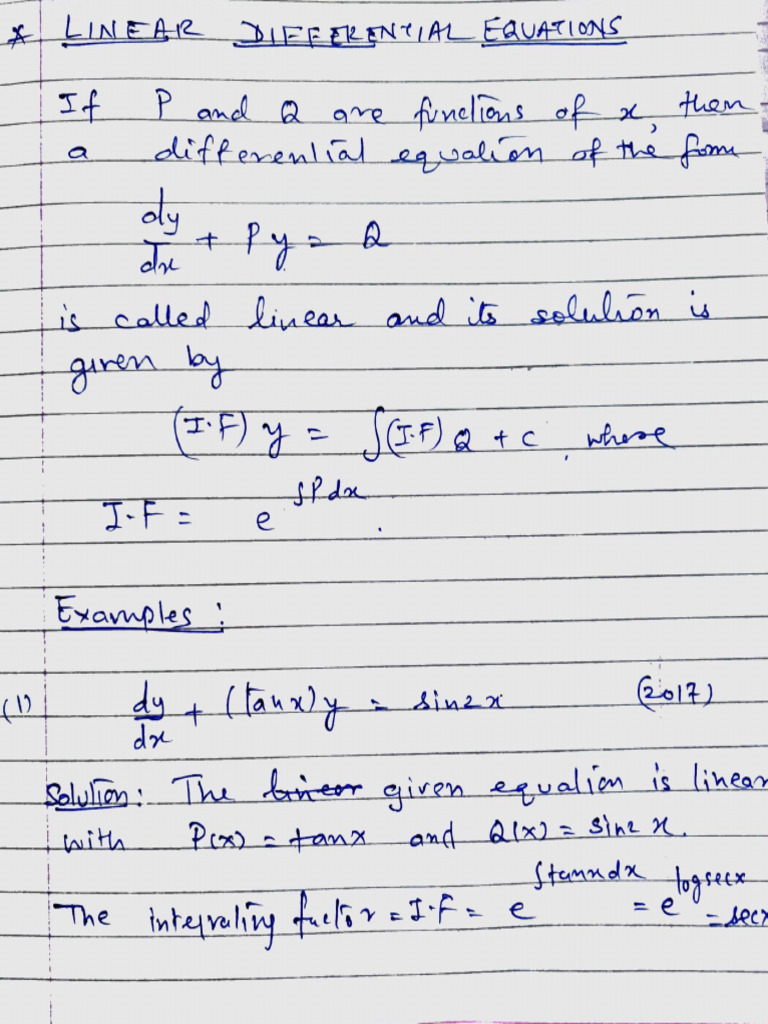 * LINEAR DIFFERENTIAL EQUATIONS
If P and Q are functions of x, then
a differential equation of the form
dy/dx + Py = Q
is called linear and its solution is
given by
(I.F) y = ∫(I.F) Q + c, where
I.F = e^∫Pdx.
Examples:
(1) dy/dx + (tanx)y = sin2x (2017)
Solution: The linear given equation is linear
with P(x) = tanx and Q(x) = sin2x.
The integrating factor = I.F = e^∫tanxdx = e^logsecx = secx